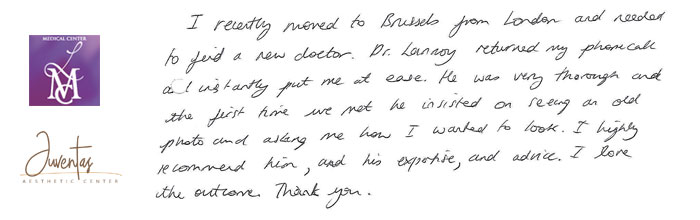 MEDICAL CENTER
LMC
Juventas
AESTHETIC CENTER
I recently moved to Brussels from London and needed
to find a new doctor. Dr. Lannoy returned my phonecall
and instantly put me at ease. He was very thorough and
the first time we met he insisted on seeing an old
photo and asking me how I wanted to look. I highly
recommend him, and his expertise, and advice. I love
the outcome. Thank you.